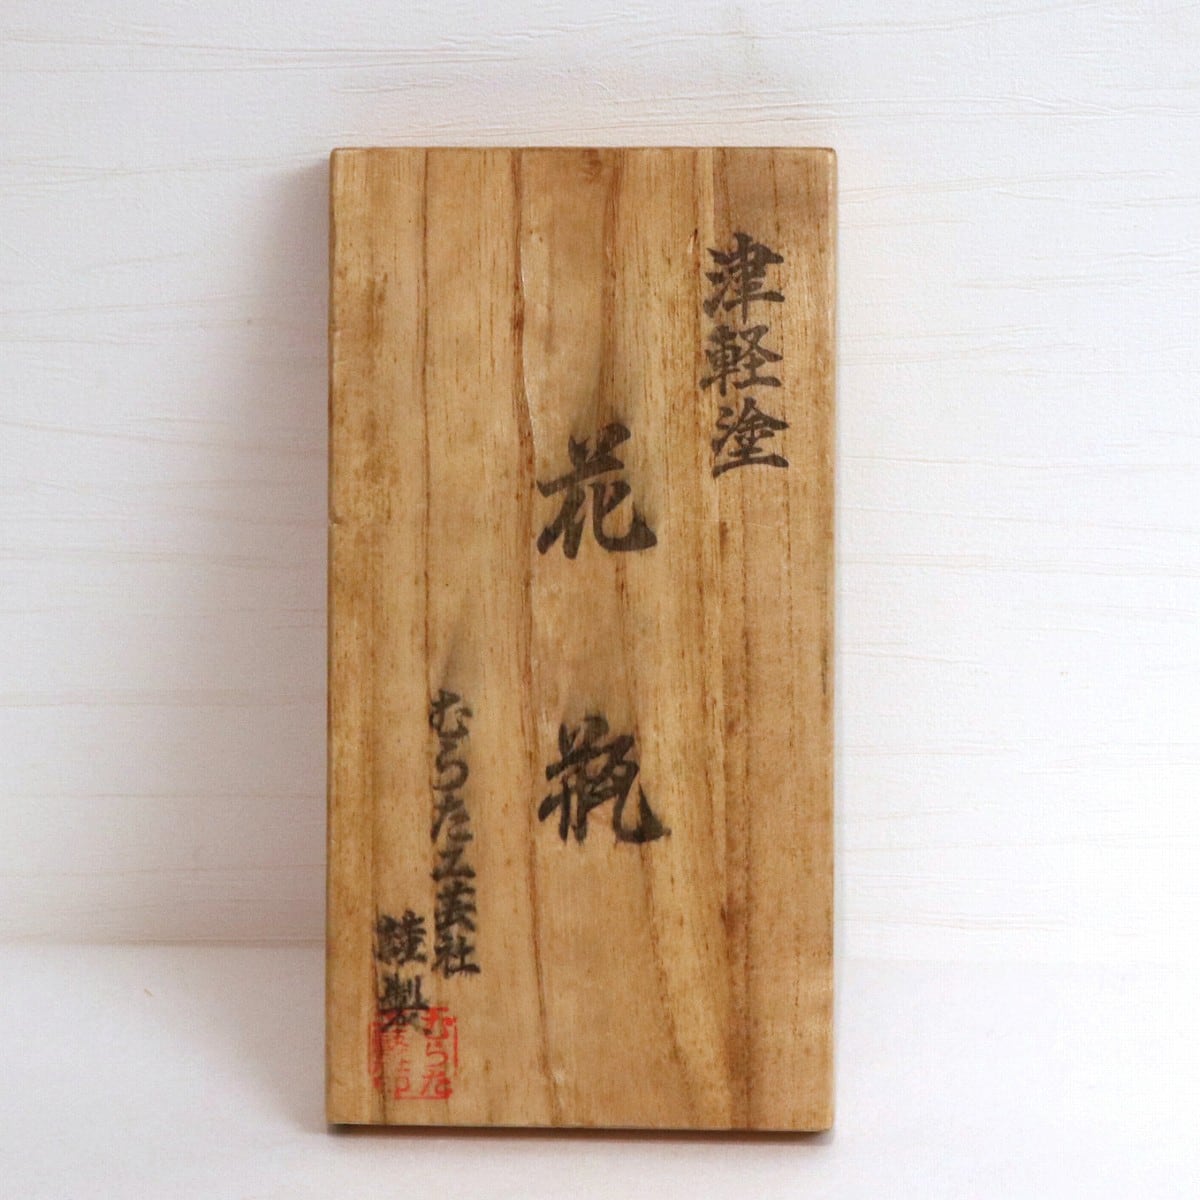 津軽塗
花瓶
むらた工芸社
謹製
むらた